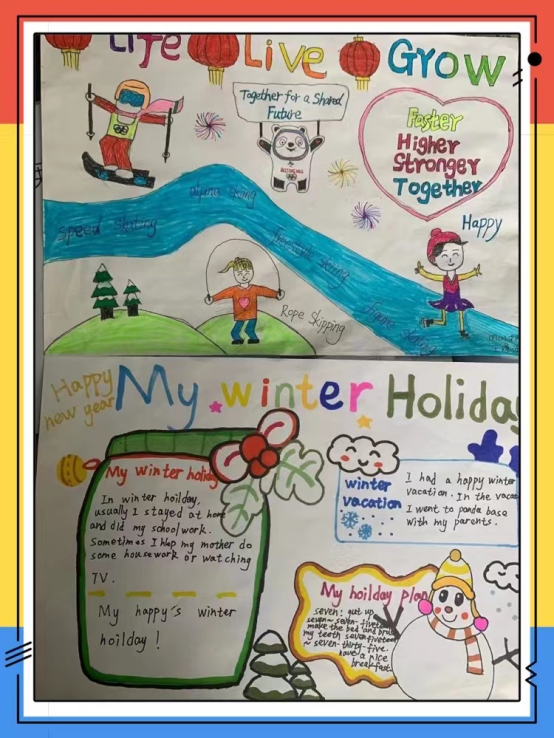 Life Live Grow
Together for a Shared
Future
Faster
Higher
Stronger
Together
Happy
speed skating
alpine skiing
freestyle skiing
figure skating
Rope Skipping
Happy
new year
My winter Holiday
My winter holiday
In winter hoilday,
usually I stayed at home
and did my schoolwork.
Sometimes I help my mother do
some housework or watching
TV.
My happy's winter
hoilday!
winter
vacation
I had a happy winter
vacation. In the vaca
I went to panda base
with my parents.
My hoilday plan
seven: get up
seven~ seven-fiveteen
make the bed and brush
my teeth seven fiveteen
~ seven-thirty-five
have a nice
breakfast